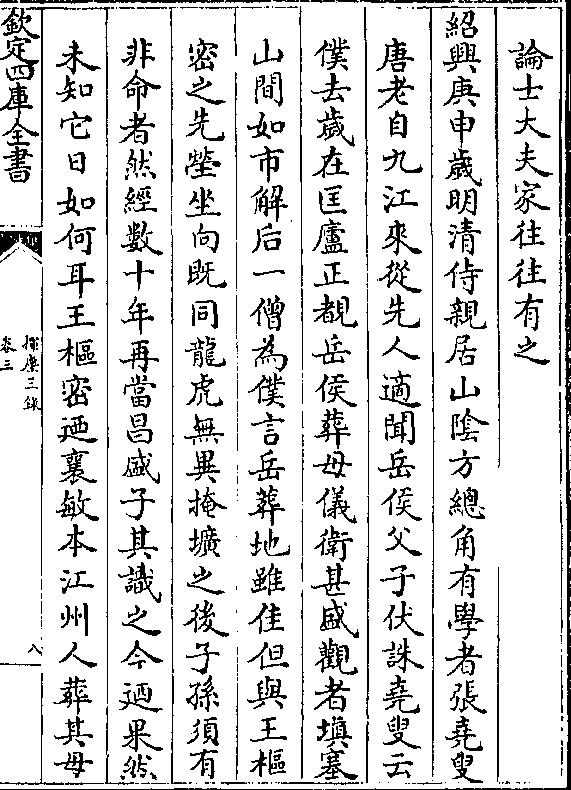 論士大夫家往往有之
紹興庚申歲明清侍親居山陰方總角有學者張堯叟
唐老自九江來從先人適聞岳侯父子伏誅堯叟云
僕去歲在匡廬正覩岳侯葬母儀衛甚盛觀者填塞
山間如市解后一僧為僕言岳葬地雖佳但與王樞
密之先塋坐向既同龍虎無異掩壙之後子孫須有
非命者然經數十年再當昌盛子其識之今迺果然
未知它日如何耳王樞密迺襄敏本江州人葬其母
欽定四庫全書
揮麈三錄
卷三
八